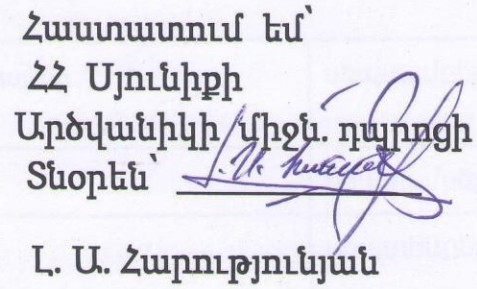 Հաստատում եմ՝
ՀՀ Սյունիքի
Արծվանիկի միջն. դպրոցի
Տնօրեն՝
Լ. Ա. Հարությունյան